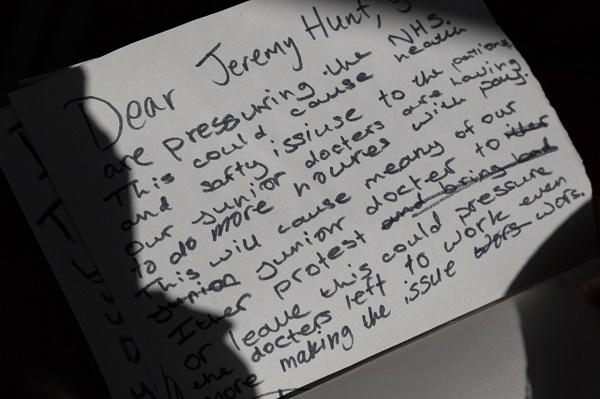 Dear Jeremy Hunt,
are pressuring the NHS.
This could cause health
and safty issiuse to the
our junior doctors are having
to do more houres with pay.
This will cause meany of our
junior docter to
Ither protest and bring
or leave this could pressure
the docters left to work even
more making the issue wors.